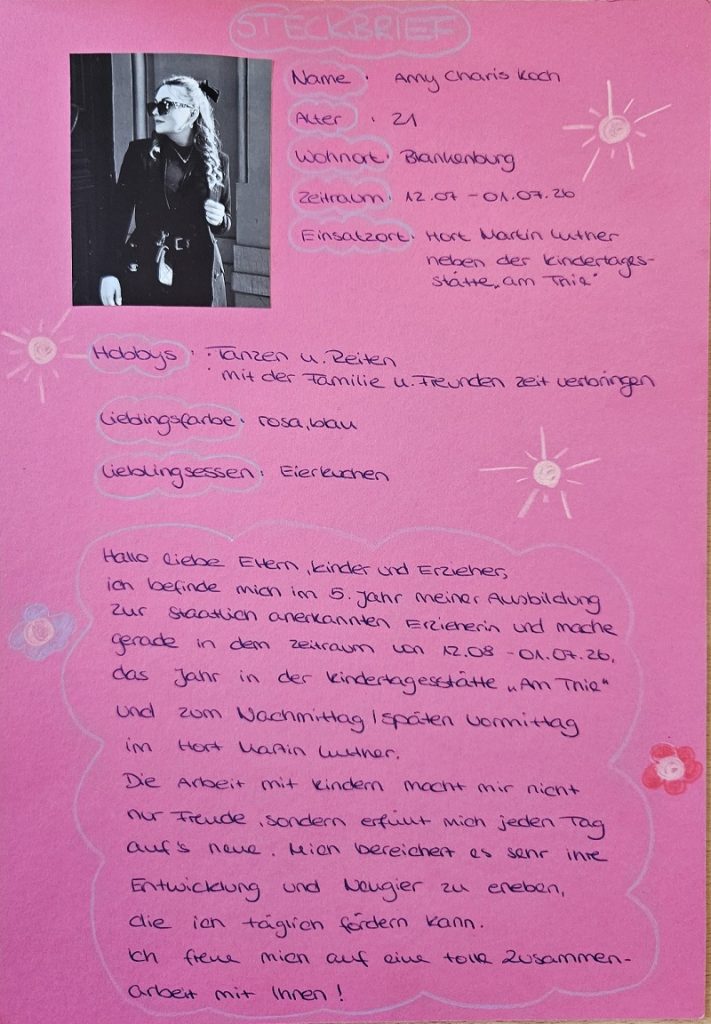 STECKBRIEF
Name : Amy Charis Koch
Alter : 21
Wohnort : Blankenburg
Zeitraum : 12.07 - 01.07.26
Einsatzort : Hort Martin Luther
neben der Kindertages-
stätte „am Thie"
Hobbys : · Tanzen u. Reiten
· mit der Familie u. Freunden Zeit verbringen
Lieblingsfarbe : rosa, blau
Lieblingsessen : Eierkuchen
Hallo liebe Eltern, Kinder und Erzieher,
ich befinde mich im 5. Jahr meiner Ausbildung
zur staatlich anerkannten Erzieherin und mache
gerade in dem Zeitraum von 12.08 - 01.07.26,
das Jahr in der Kindertagesstätte „Am Thie"
und zum Nachmittag / späten Vormittag
im Hort Martin Luther.
Die Arbeit mit Kindern macht mir nicht
nur Freude, sondern erfüllt mich jeden Tag
auf's neue. Mich bereichert es sehr ihre
Entwicklung und Neugier zu erleben,
die ich täglich fördern kann.
Ich freue mich auf eine tolle Zusammen-
arbeit mit Ihnen !